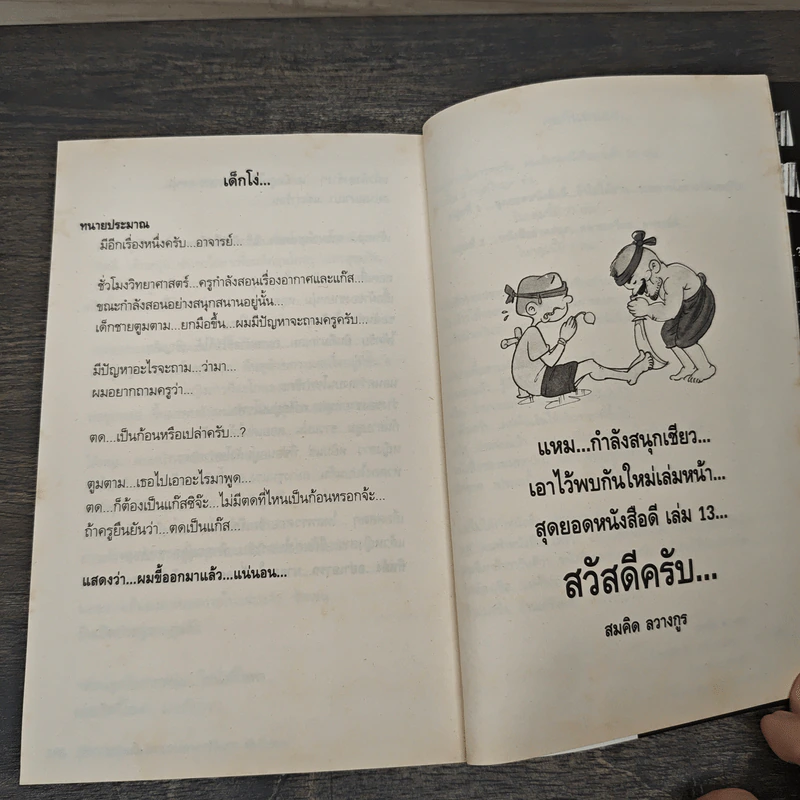 เด็กโง่...
ทนายประมาณ
มีอีกเรื่องหนึ่งครับ...อาจารย์...
ชั่วโมงวิทยาศาสตร์...ครูกำลังสอนเรื่องอากาศและแก๊ส...
ขณะกำลังสอนอย่างสนุกสนานอยู่นั้น...
เด็กชายตูมตาม...ยกมือขึ้น...ผมมีปัญหาจะถามครูครับ...
มีปัญหาอะไรจะถาม...ว่ามา...
ผมอยากถามครูว่า...
ตด...เป็นก้อนหรือเปล่าครับ...?
ตูมตาม...เธอไปเอาอะไรมาพูด...
ตด...ก็ต้องเป็นแก๊สซิจ๊ะ...ไม่มีตดที่ไหนเป็นก้อนหรอกจ้ะ...
ถ้าครูยืนยันว่า...ตดเป็นแก๊ส...
แสดงว่า...ผมขี้ออกมาแล้ว...แน่นอน...
แหม...กำลังสนุกเชียว...
เอาไว้พบกันใหม่เล่มหน้า...
สุดยอดหนังสือดี เล่ม 13...
สวัสดีครับ...
สมคิด ลวางกูร